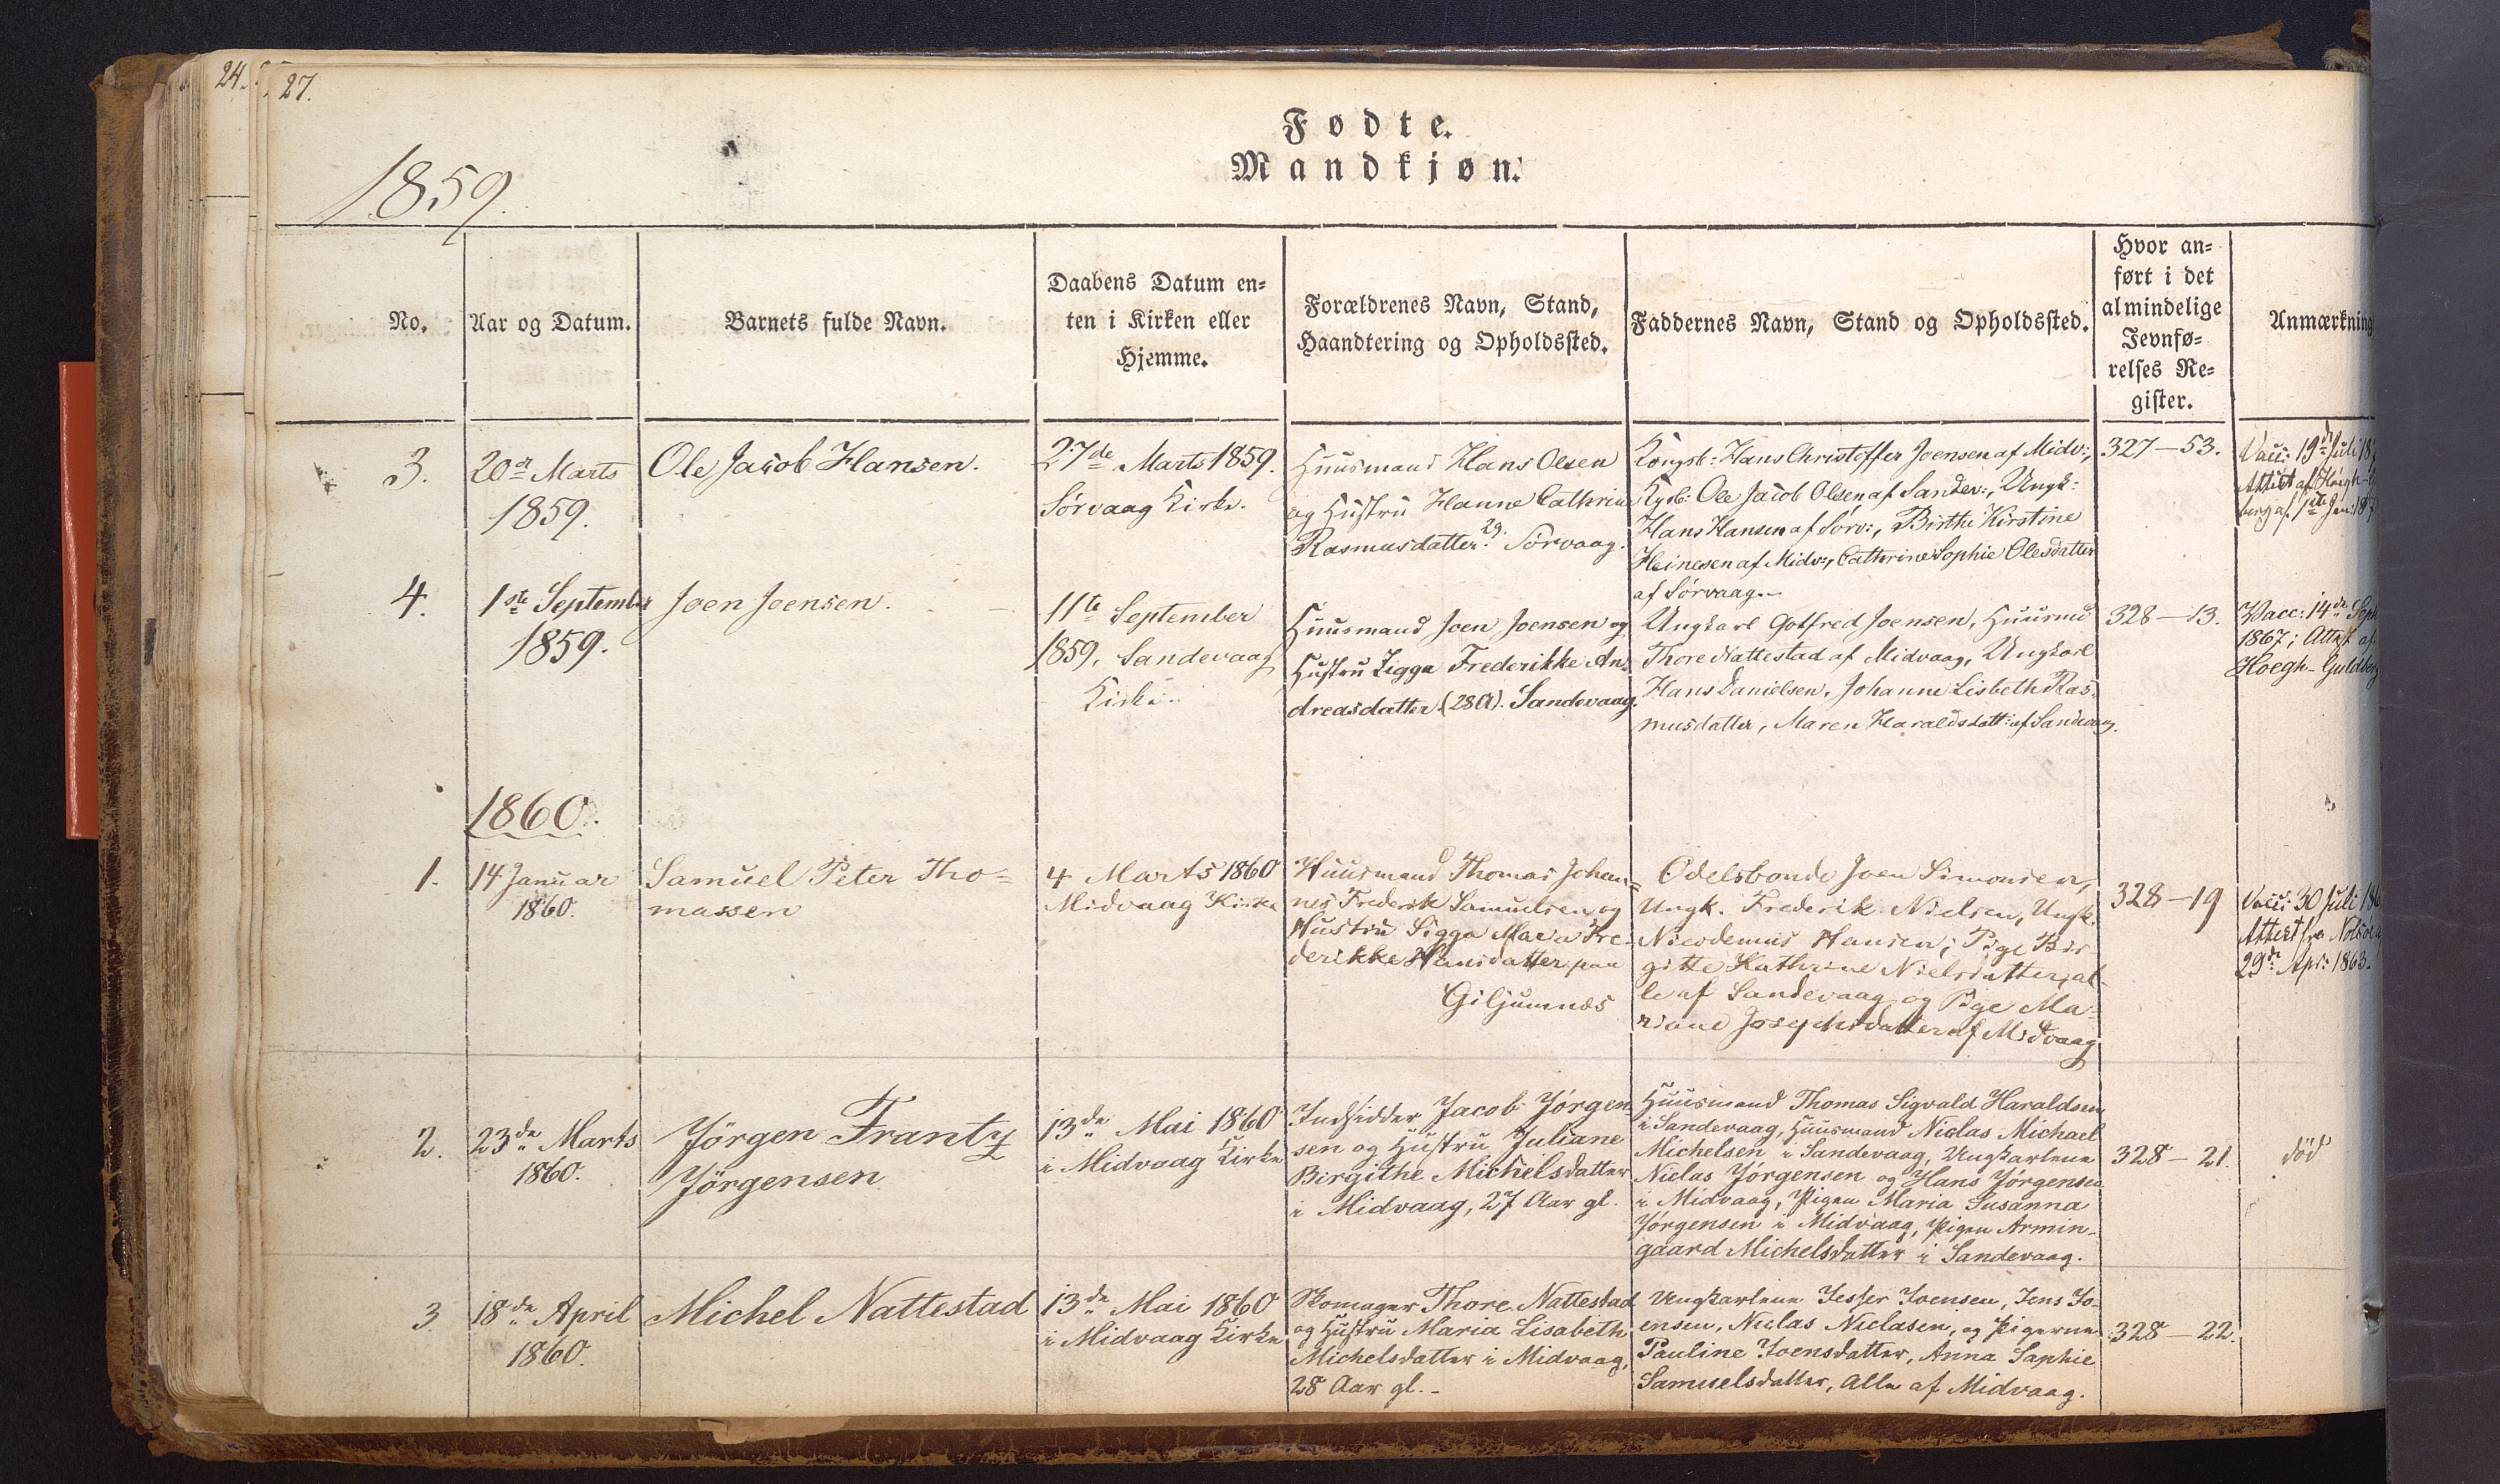 24.
27.
Fødte.
Mandkjøn.
1859.
No.
Aar og Datum.
Barnets fulde Navn.
Daabens Datum en-
ten i Kirken eller
Hjemme.
Forældrenes Navn, Stand,
Haandtering og Opholdssted.
Faddernes Navn, Stand og Opholdssted.
Hvor an-
ført i det
almindelige
Jevnfø-
relses Re-
gister.
Anmærkning
3.
20de Marts
1859.
Ole Jacob Hansen.
27de Marts 1859.
Sörvaag Kirke.
Huusmand Hans Olsen
og Hustru Hanne Cathrine
Rasmusdatter 29. Sörvaag.
Kongsb: Hans Christoffer Joensen af Midv:,
Kgsb: Ole Jacob Olsen af Sandev:, Ungk:
Hans Hansen af Sörv:, Birthe Kirstine
Heinesen af Midv:, Cathrine Sophie Olesdatter
af Sörvaag.-
327-53.
Vacc: 19de Juli 18
Attest af Høegh-
berg af 1ste Jan: 18
4.
1ste September
1859.
Joen Joensen.
11te September
1859, Sandevaag
Kirke.
Huusmand Joen Joensen og
Hustru Zigga Frederikke An-
dreasdatter. (28 A). Sandevaag.
Ungkarl Gotfred Joensen, Huusmd
Thore Nattestad af Midvaag, Ungkarl
Hans Danielsen, Johanne Lisbeth Ras-
musdatter, Maren Haraldsdatt: af Sandevaag.
328-13.
Vacc: 14de Sept
1867; Attest af
Hoegh-Guldberg
1860.
1.
14 Januar
1860.
Samuel Peter Tho=
massen
4 Marts 1860
Midvaag Kirke
Huusmand Thomas Johan=
nes Frederik Samuelsen og
Hustru Sigga Maria Fre-
derikke Hansdatter paa
Giljumnæs
Odelsbonde Joen Simonsen,
Ungk. Frederik Nielsen, Ungk.
Nicodemus Hansen, Pige Bir
gitte Kathrine Nielsdatter, al-
le af Sandevaag og Pige Ma-
riane Josephsdatter af Midvaag
328-19
Vacc: 30 Juli 186
Attest fra Nolsöe
29de Apr: 1863.
2.
23de Marts
1860.
Jörgen Frantz
Jörgensen
13de Mai 1860
i Midvaag Kirke
Indsidder Jacob Jörgen-
sen og Hustru Juliane
Birgithe Michelsdatter
i Midvaag, 27 Aar gl.
Huusmand Thomas Sigvald Haraldsen
i Sandevaag, Huusmand Niclas Michael
Michelsen i Sandevaag, Ungkarlene
Niclas Jörgensen og Hans Jörgensen
i Midvaag, Pigen Maria Susanna
Jörgensen i Midvaag, Pigen Armin-
gaard Michelsdatter i Sandevaag.
328-21.
död
3.
18de April
1860.
Michel Nattestad
13de Mai 1860
i Midvaag Kirke
Skomager Thore Nattestad
og Hustru Maria Lisabeth
Michelsdatter i Midvaag,
28 Aar gl.-
Ungkarlene Jesper Joensen, Jens Jo-
ensen, Niclas Niclasen, og Pigerne
Pauline Joensdatter, Anna Sophie
Samuelsdatter, Alle af Midvaag.
328-22.